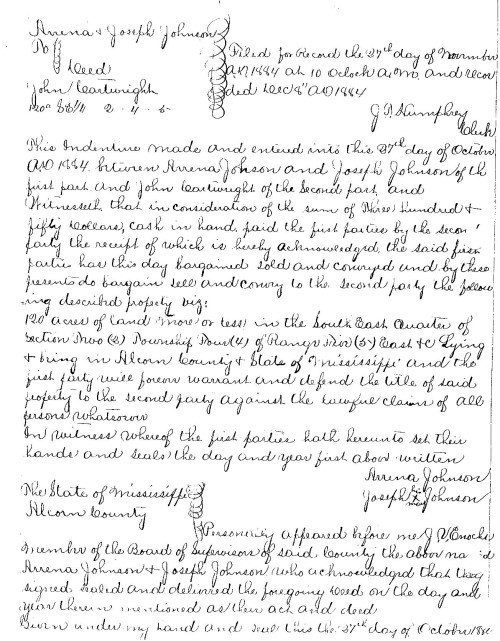 Arrena & Joseph Johnson
To
Deed
John Cartwright
120a SE¼ 2-4-5
Filed for Record the 27th day of November
AD 1884 at 10 Oclock A.M. and recor
ded Dec 8" AD 1884
J P Humphrey
Clerk
This Indenture made and entered into this 27th day of October
AD 1884 between Arrena Johnson and Joseph Johnson of the
first part and John Cartwright of the Second part, and
Witnesseth that in consideration of the sum of Three Hundred &
fifty Dollars, cash in hand, paid the first parties by the secon
party the receipt of which is hereby acknowledged, the said first
partie has this day bargained sold and conveyed and by these
presents do bargain sell and convey to the second party the follow
ing described property viz:
120 acres of land more or less in the South East Quarter of
Section Two (2) Township Four (4) of Range Five (5) East &c Lying
& being in Alcorn County & State of Mississippi and the
first party will forever warrant and defend the title of said
property to the second party against the lawful claims of all
persons whatsoever
In witness whereof the first parties hath hereunto set their
hands and seals the day and year first above written
Arrena Johnson
Joseph his X mark Johnson
The State of Mississippi
Alcorn County
Personerly appeared before me J V Enochs
Member of the Board of Supervisors of said County the above na d
Arrena Johnson & Joseph Johnson who acknowledged that they
signed sealed and delivered the foregoing Deed on the day and
year therein mentioned as their act and deed
Given under my hand and seal this the 27th day of October 188